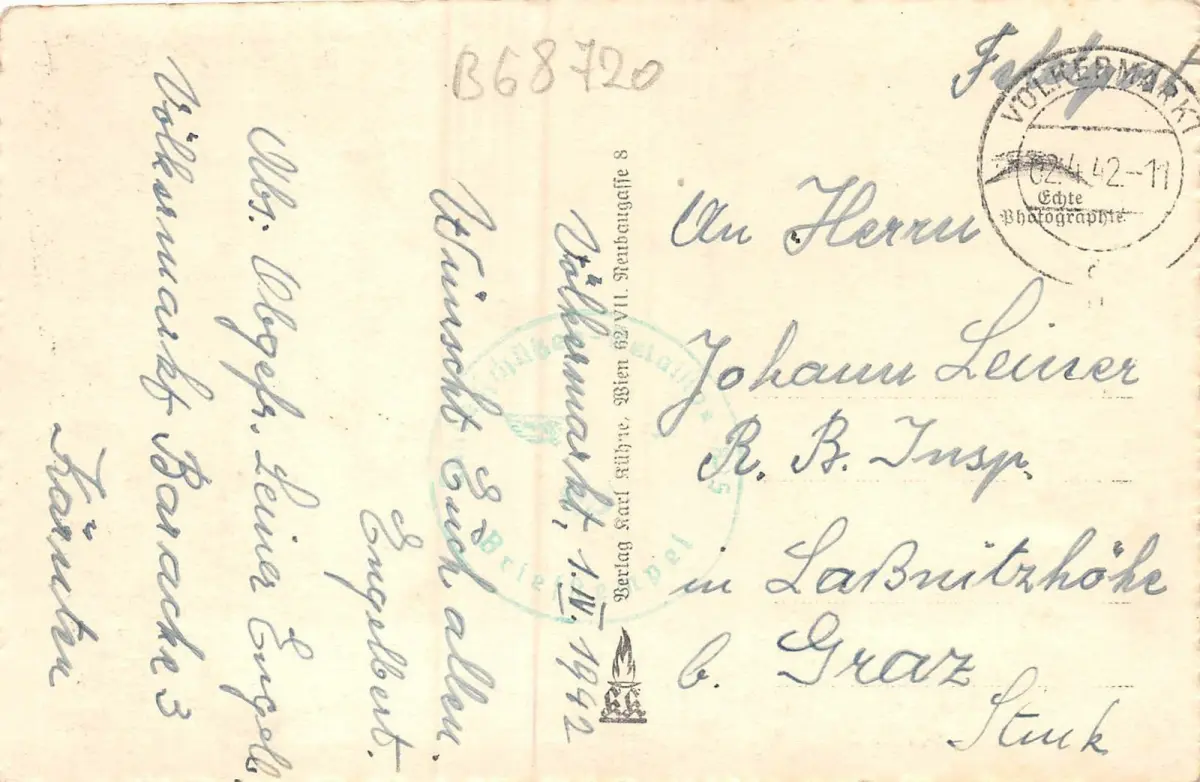 B 68720
Feldpost
VÖLKERMARKT
02.4.42.-11
Echte
Photographie
An Herrn
Johann Leiner
R. B. Insp.
in Laßnitzhöhe
b. Graz
Verlag Karl Kühne, Wien 62/VII. Neubaugasse 8
KK
Briefstempel
Völkermarkt, 1.IV. 1942
Wünscht Euch allen
Engelbert.
Abs. Obgefr. Leiner Engelb.
Völkermarkt Baracke 3
Kärnten